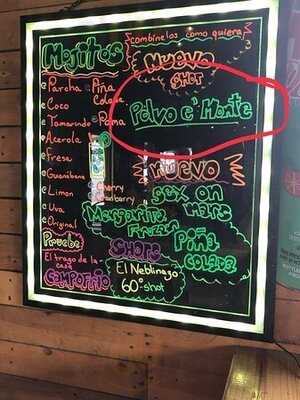 Mojitos
combinelos como quiera
Parcha
Piña Colada
Coco
Tamarindo
Pama
Acerola
Fresa
Guanábana
Limon
Uva
Original
Pruebe
El trago de la casa
CAMPOFRIO
Nuevo
SHOT
Polvo e' Monte
NUEVO
SEX ON
MARS
Margarita
Frozen
Piña
Colada
SHOTS
El Neblinazo
60° shot